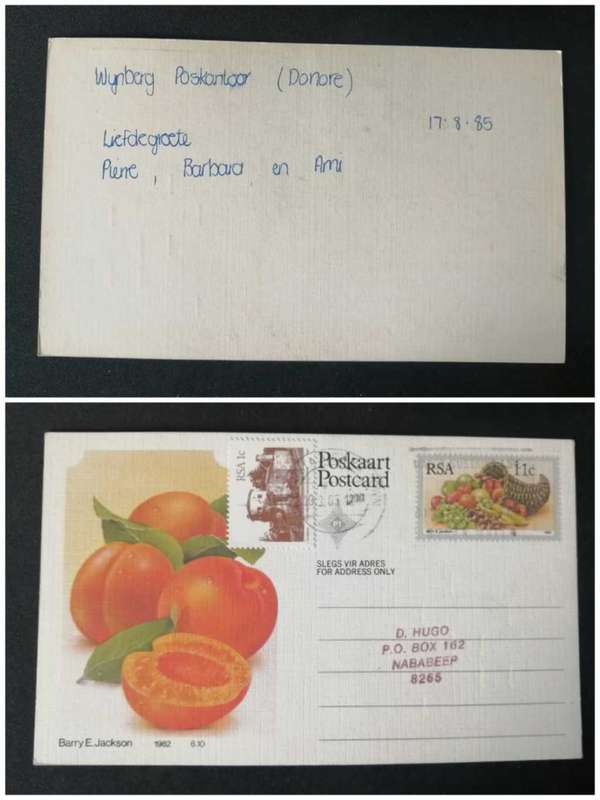 Wynberg Poskantoor (Donore)
17·8·85
Liefdegroete
Pierre, Barbara, en Ami
RSA 1c
Poskaart
Postcard
RSA 11c
SLEGS VIR ADRES
FOR ADDRESS ONLY
D. HUGO
P.O. BOX 162
NABABEEP
8265
Barry E. Jackson 1982 6.10